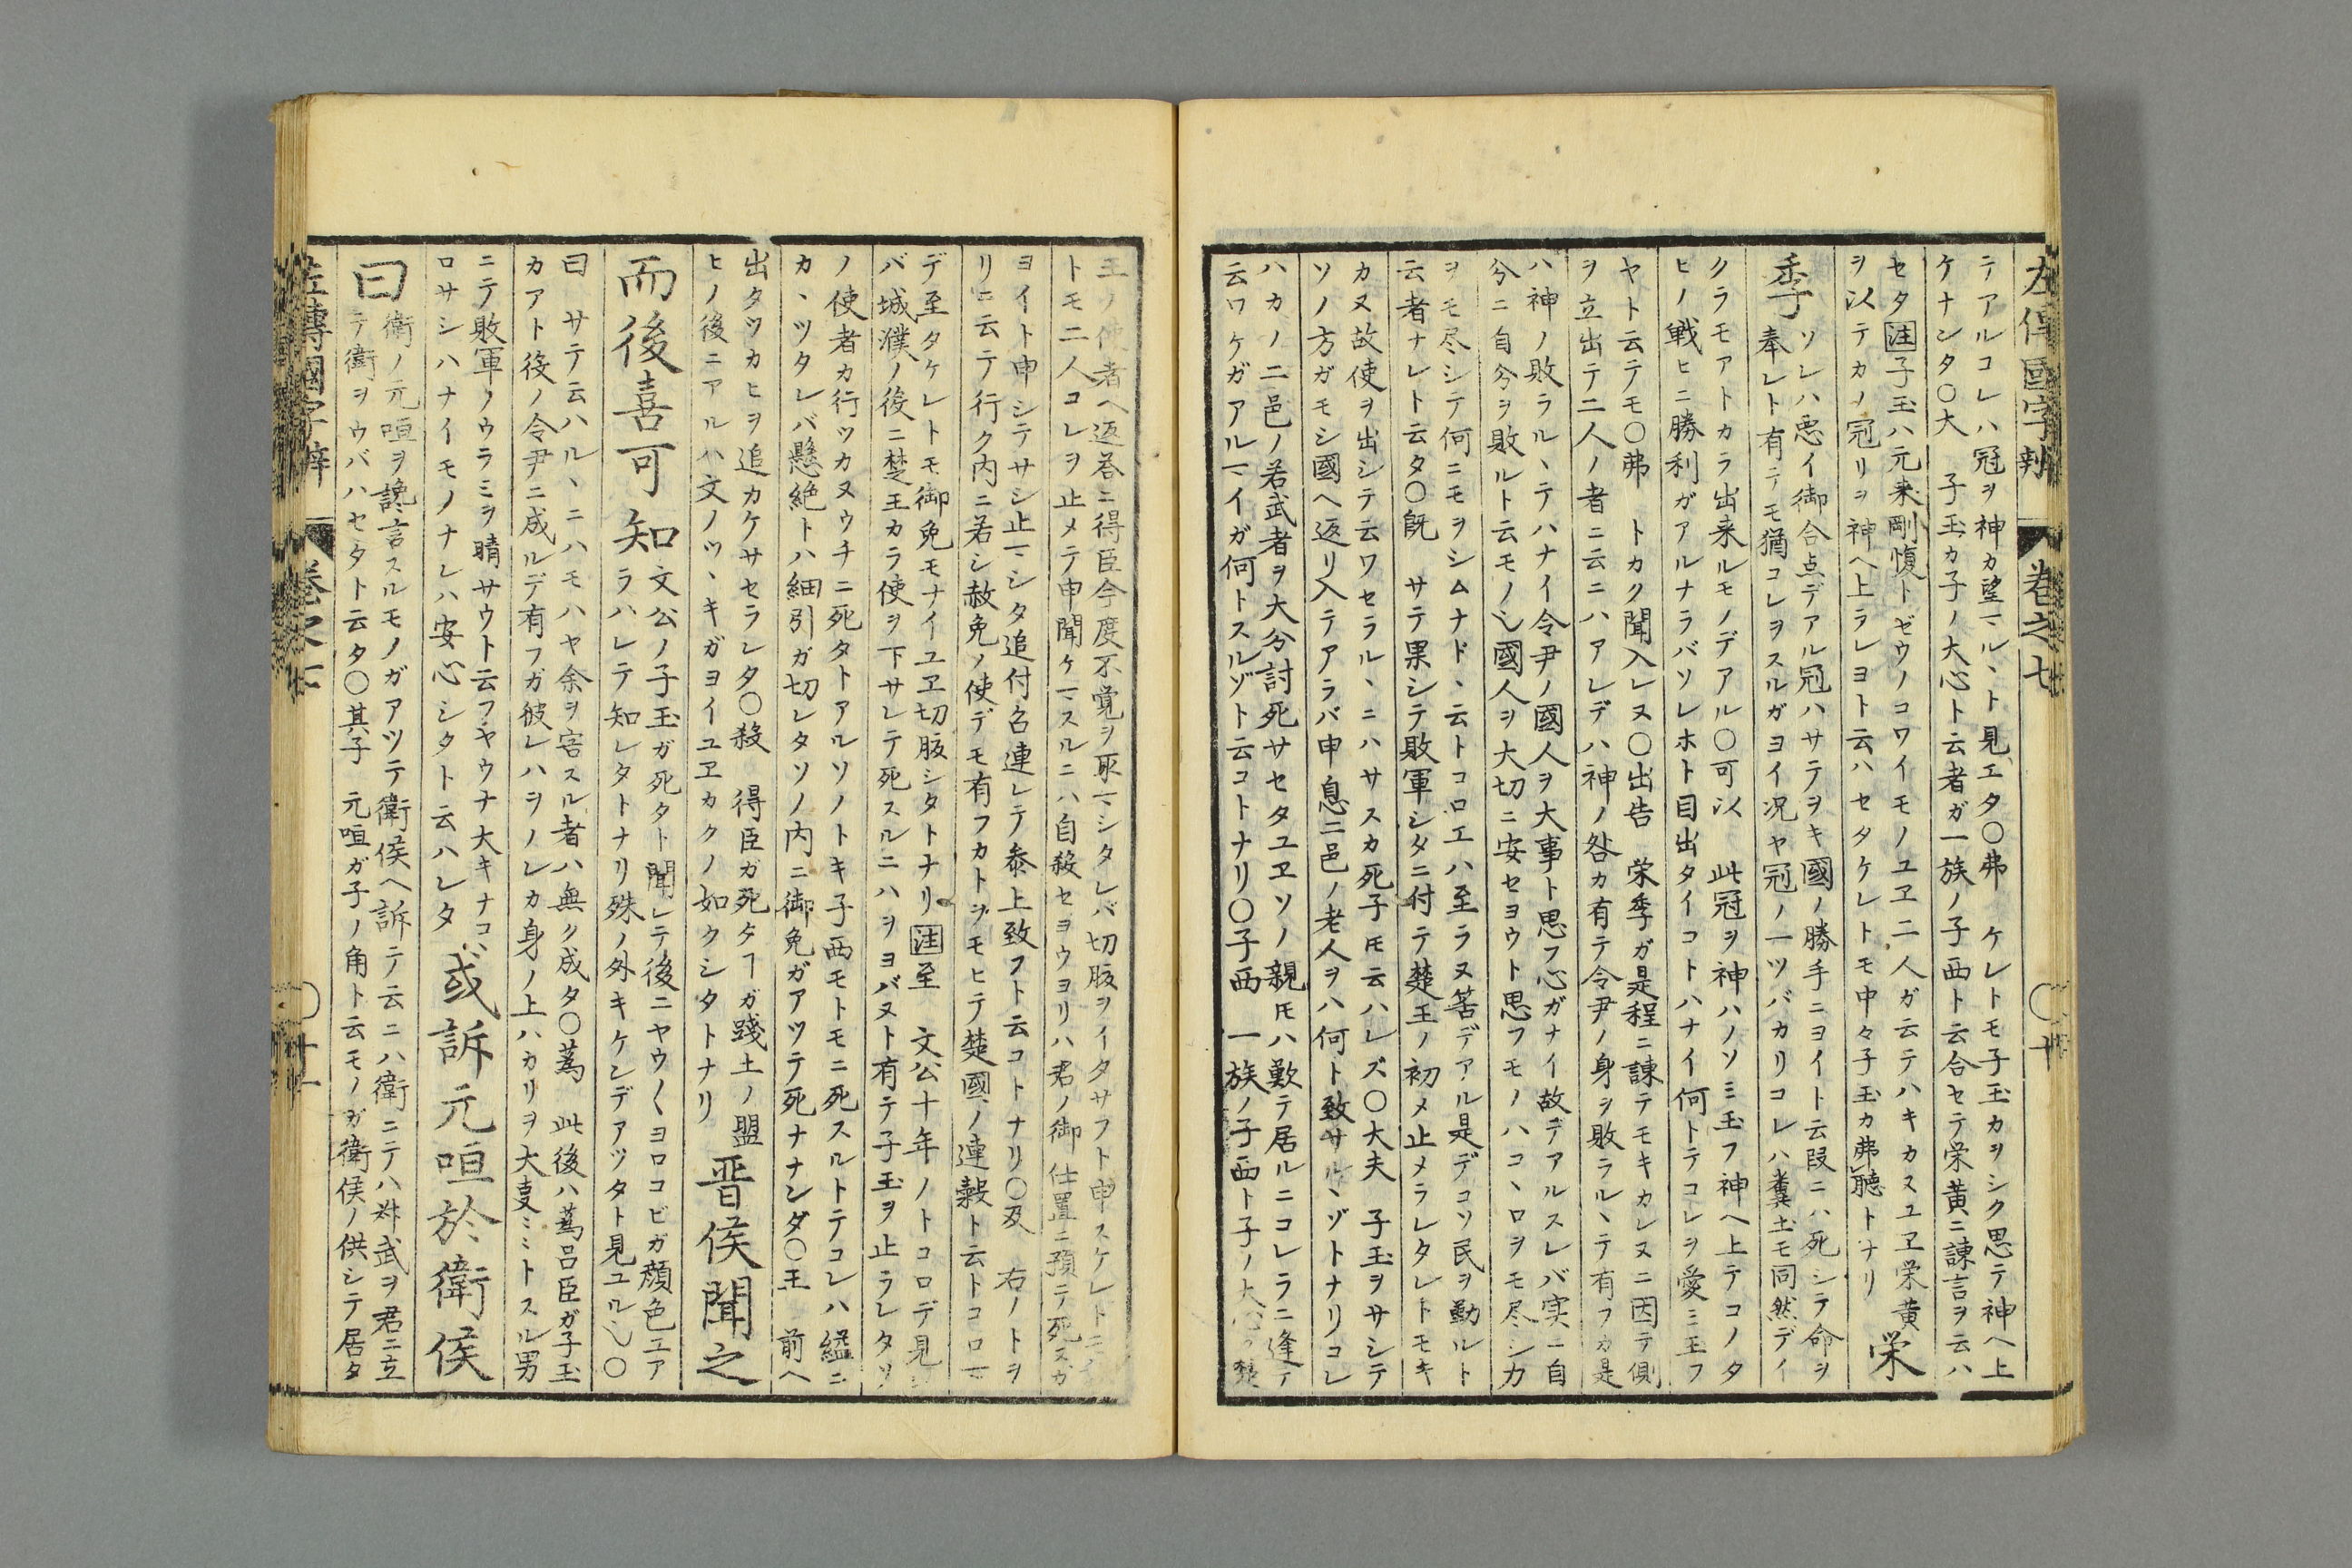 左傳國字辨 卷之七 〇十
テアルコレハ冠ヲ神カ望マル丶ト見エタ〇弗 ケレトモ子玉カヲシク思テ神ヘ上
ケナンタ〇大 子玉カ子ノ大心ト云者ガ一族ノ子西ト云合セテ栄黄ニ諫言ヲ云ハ
セタ注子玉ハ元来剛愎トゼウノコワイモノユヱ二人ガ云テハキカヌユヱ栄黄
ヲ以テカノ冠リヲ神ヘ上ラレヨト云ハセタケレトモ中々子玉カ弗聴トナリ
栄
季
ソレハ悪イ御合点デアル冠ハサテヲキ國ノ勝手ニヨイト云叚ニハ死シテ命ヲ
奉レト有テモ猶コレヲスルガヨイ况ヤ冠ノ一ツバカリコレハ糞土モ同然デイ
クラモアトカラ出来ルモノデアル〇可以 此冠ヲ神ハノソミ玉フ神ヘ上テコノタ
ヒノ戦ヒニ勝利ガアルナラバソレホト目出タイコトハナイ何トテコレヲ愛ミ玉フ
ヤト云テモ〇弗 トカク聞入レヌ〇出告 栄季ガ是程ニ諫テモキカレヌニ因テ側
ヲ立出テ二人ノ者ニ云ニハアレデハ神ノ咎カ有テ令尹ノ身ヲ敗ラル丶テ有フカ是
ハ神ノ敗ラル丶テハナイ令尹ノ國人ヲ大事ト思フ心ガナイ故デアルスレバ実ニ自
分ニ自分ヲ敗ルト云モノ乄國人ヲ大切ニ安セヨウト思フモノハコ丶ロヲモ尽シカ
ヲモ尽シテ何ニモヲシムナド丶云トコロエハ至ラヌ筈デアル是デコソ民ヲ勤ルト
云者ナレト云タ〇既 サテ果シテ敗軍シタニ付テ楚王ノ初メ止メラレタレトモキ
カヌ故使ヲ出シテ云ワセラル丶ニハサスカ死子ㇳモ云ハレズ〇大夫 子玉ヲサシテ
ソノ方ガモシ國ヘ返リ入テアラバ申息二邑ノ老人ヲハ何ト致サル丶ゾトナリコレ
ハカノ二邑ノ若武者ヲ大分討死サセタユヱソノ親ㇳモハ歎テ居ルニコレラニ逢テ
云ワケガアルマイガ何トスルゾト云コトナリ〇子西 一族ノ子西ト子ノ大心ㇳ
王ノ使者ヘ返荅ニ得臣今度不覚ヲ取マシタレバ切腹ヲイタサフト申スケレト
トモ二人コレヲ止メテ申聞ケマスルニハ自殺セヨウヨリハ君ノ御仕置ニ預テ死スカ
ヨイト申シテサシ止マシタ追付召連レテ参上致フト云コトナリ〇及 右ノトヲ
リニ云テ行ク内ニ若シ赦免ノ使デモ有フカトヲモヒテ楚國ノ連穀ト云トコロマ
デ至タケレトモ御免モナイユヱ切腹シタトナリ注至 文公十年ノトコロデ見レ
バ城濮ノ後ニ楚王カラ使ヲ下サレテ死スルニハヲヨバヌト有テ子玉ヲ止ラレタソ
ノ使者カ行ツカヌウチニ死タトアルソノトキ子西モトモニ死スルトテコレハ縊ニ
カ丶ツタレバ懸絶トハ細引ガ切レタソノ内ニ御免ガアツテ死ナナンダ〇王 前ヘ
出タツカヒヲ追カケサセラレタ〇殺 得臣ガ死タヿガ踐土ノ盟
ヒノ後ニアルハ文ノツ丶キガヨイユヱカクノ如クシタトナリ
晋侯聞之
而後喜可知
文公ノ子玉ガ死タト聞レテ後ニヤウ〱ヨロコビガ顔色ヱア
ラハレテ知レタトナリ殊ノ外キケンデアツタト見ユル乄〇
曰 サテ云ハル丶ニハモハヤ余ヲ害スル者ハ無ク成タ〇蔿 此後ハ蔿呂臣ガ子玉
カアト役ノ令尹ニ成ルデ有フガ彼レハヲノレカ身ノ上ハカリヲ大㕝ミトスル男
ニテ敗軍ノウラミヲ晴サウト云フヤウナ大キナコ丶
ロサシハナイモノナレハ安心シタト云ハレタ
或訴元咺於衛侯
曰
衛ノ元咺ヲ讒言スルモノガアツテ衛侯ヘ訴テ云ニハ衛ニテハ叔武ヲ君ニ立
テ衛ヲウバハセタト云タ〇其子 元咺ガ子ノ角ト云モノガ衛侯ノ供シテ居タ
左傳國字辨 卷之七 〇十一